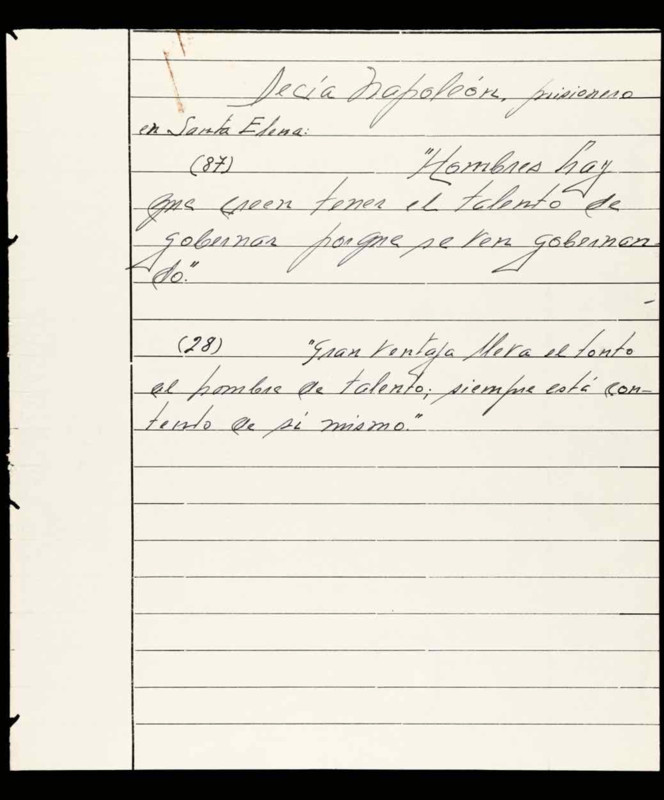 Decía Napoleón, prisionero
en Santa Elena:
(87) "Hombres hay
que creen tener el talento de
gobernar porque se ven gobernan-
do."
(28) "Gran ventaja lleva el tonto
al hombre de talento; siempre está con-
tento de sí mismo."